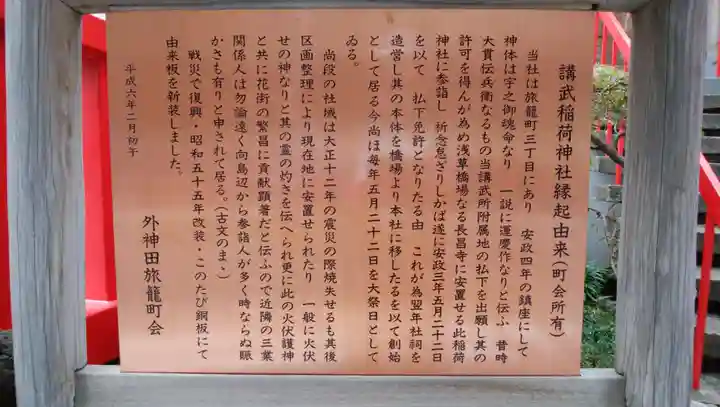 講武稲荷神社縁起由来(町会所有)
当社は旅籠町三丁目にあり 安政四年の鎮座にして
神体は宇之御魂命なり 一説に運慶作なりと伝ふ 昔時
大貫伝兵衛なるもの当講武所附属地の払下を出願し其の
許可を得んが為め浅草橋場なる長昌寺に安置せる此稲荷
神社に参詣し 祈念怠ざりしかば遂に安政三年五月二十二日
を以て 払下免許となりたる由 これが為翌年社祠を
造営し其の本体を橋場より本社に移したるを以て創始
として居る今尚ほ毎年五月二十二日を大祭日として
ゐる。
尚段の社域は大正十二年の震災の際焼失せるも其後
区画整理により現在地に安置せられたり 一般に火伏
せの神なりと其の霊の灼きを伝へられ更に此の火伏護神
と共に花街の繁昌に貢献顕著だと伝ふので近隣の三業
関係人は勿論遠く向島辺から参詣人が多く時ならぬ賑
かさも有りと申されて居る。(古文のまゝ)
戦災で復興・昭和五十五年改装・このたび銅板にて
由来板を新装しました。
平成六年二月初午
外神田旅籠町会